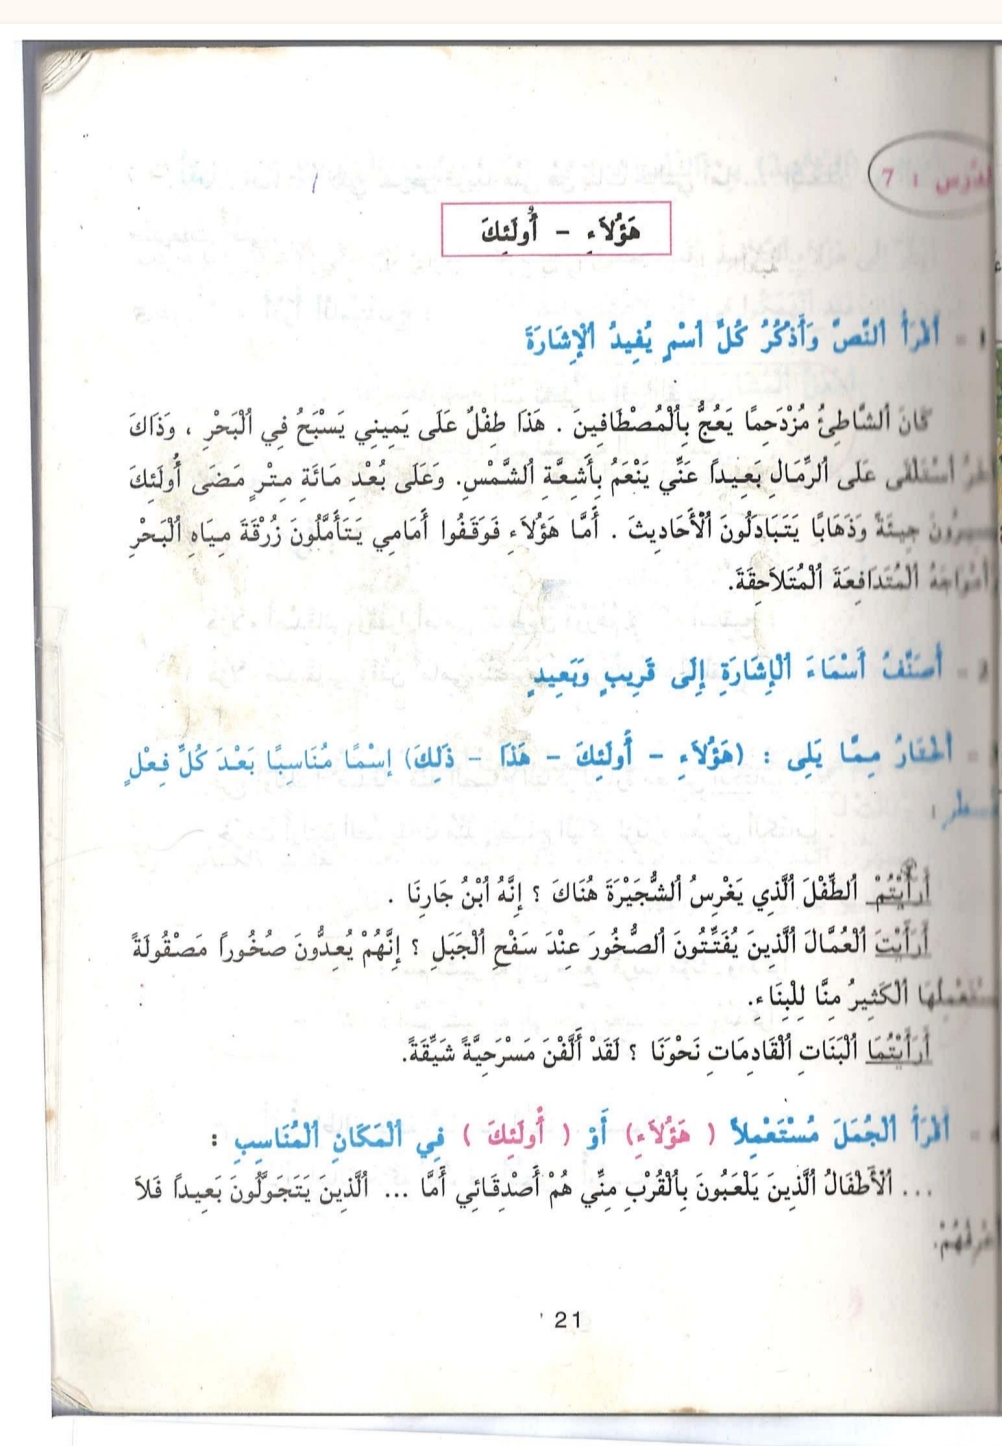 الدَّرْس : 7
هَؤُلاَءِ - أُولَئِكَ
1 - اَقْرَأُ اَلنَّصَّ وَأَذْكُرُ كُلَّ اَسْمٍ يُفِيدُ اَلْإِشَارَةَ
كَانَ اَلشَّاطِئُ مُزْدَحِمًا يَعُجُّ بِاَلْمُصْطَافِينَ . هَذَا طِفْلٌ عَلَى يَمِينِي يَسْبَحُ فِي اَلْبَحْرِ ، وَذَاكَ
اَسْتَلْقَى عَلَى اَلرِّمَالِ بَعِيداً عَنِّي يَنْعَمُ بِأَشِعَّةِ اَلشَّمْسِ. وَعَلَى بُعْدِ مَائَةِ مِتْرٍ مَضَى أُولَئِكَ
جِيئَةً وَذَهَابًا يَتَبَادَلُونَ اَلْأَحَادِيثَ . أَمَّا هَؤُلاَءِ فَوَقَفُوا أَمَامِي يَتَأَمَّلُونَ زُرْقَةَ مِيَاهِ اَلْبَحْرِ
اَلْمُتَدَافِعَةَ اَلْمُتَلاَحِقَةَ.
- أُصَنِّفُ أَسْمَاءَ اَلْإِشَارَةِ إِلَى قَرِيبٍ وَبَعِيدٍ
- اَخْتَارُ مِمَّا يَلِي : (هَؤُلاَءِ - أُولَئِكَ - هَذَا - ذَلِكَ) إِسْمًا مُنَاسِبًا بَعْدَ كُلِّ فِعْلٍ
أَرَأَيْتُمْ اَلطِّفْلَ اَلَّذِي يَغْرِسُ اَلشُّجَيْرَةَ هُنَاكَ ؟ إِنَّهُ اَبْنُ جَارِنَا .
أَرَأَيْتَ اَلْعُمَّالَ اَلَّذِينَ يُفَتِّتُونَ اَلصُّخُورَ عِنْدَ سَفْحِ اَلْجَبَلِ ؟ إِنَّهُمْ يُعِدُّونَ صُخُوراً مَصْقُولَةً
اَلْكَثِيرُ مِنَّا لِلْبِنَاءِ.
أَرَأَيْتُمَا اَلْبَنَاتِ اَلْقَادِمَاتِ نَحْوَنَا ؟ لَقَدْ أَلَّفْنَ مَسْرَحِيَّةً شَيِّقَةً.
- اَقْرَأُ اَلْجُمَلَ مُسْتَعْمِلاً ( هَؤُلاَءِ) أَوْ ( أُولَئِكَ ) فِي اَلْمَكَانِ اَلْمُنَاسِبِ :
... اَلْأَطْفَالُ اَلَّذِينَ يَلْعَبُونَ بِاَلْقُرْبِ مِنِّي هُمْ أَصْدِقَائِي أَمَّا ... اَلَّذِينَ يَتَجَوَّلُونَ بَعِيداً فَلاَ
أَعْرِفُهُمْ.
21